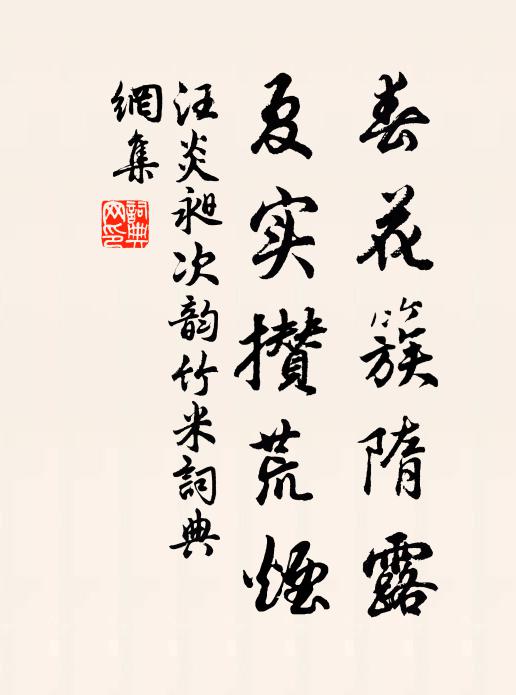 春花簇隋露
夏实攒荒煙
汪炎昶次韵竹米詞典
網集
詞典网印